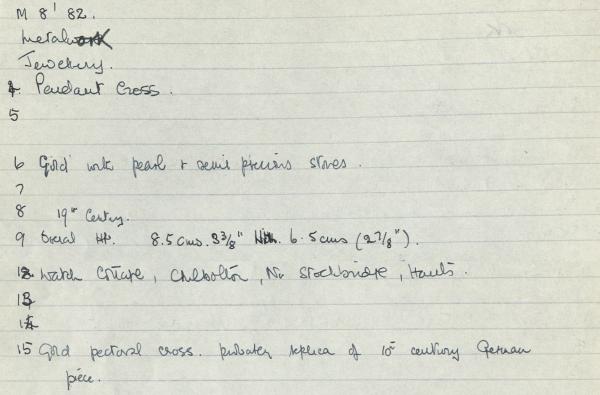 M 8' 82.
Metalwork
Jewellery.
4 Pendant Cross.
5
6 Gold with pearl + semi precious stones.
7
8 19th Century.
9 Overall Ht. 8.5 cms. 3 3/8" Wth. 6.5 cms (2 7/8").
12 Watch Cottage, Chilbolton, Nr Stockbridge, Hants.
13
14
15 Gold pectoral cross. probably replica of 10th century German
piece.